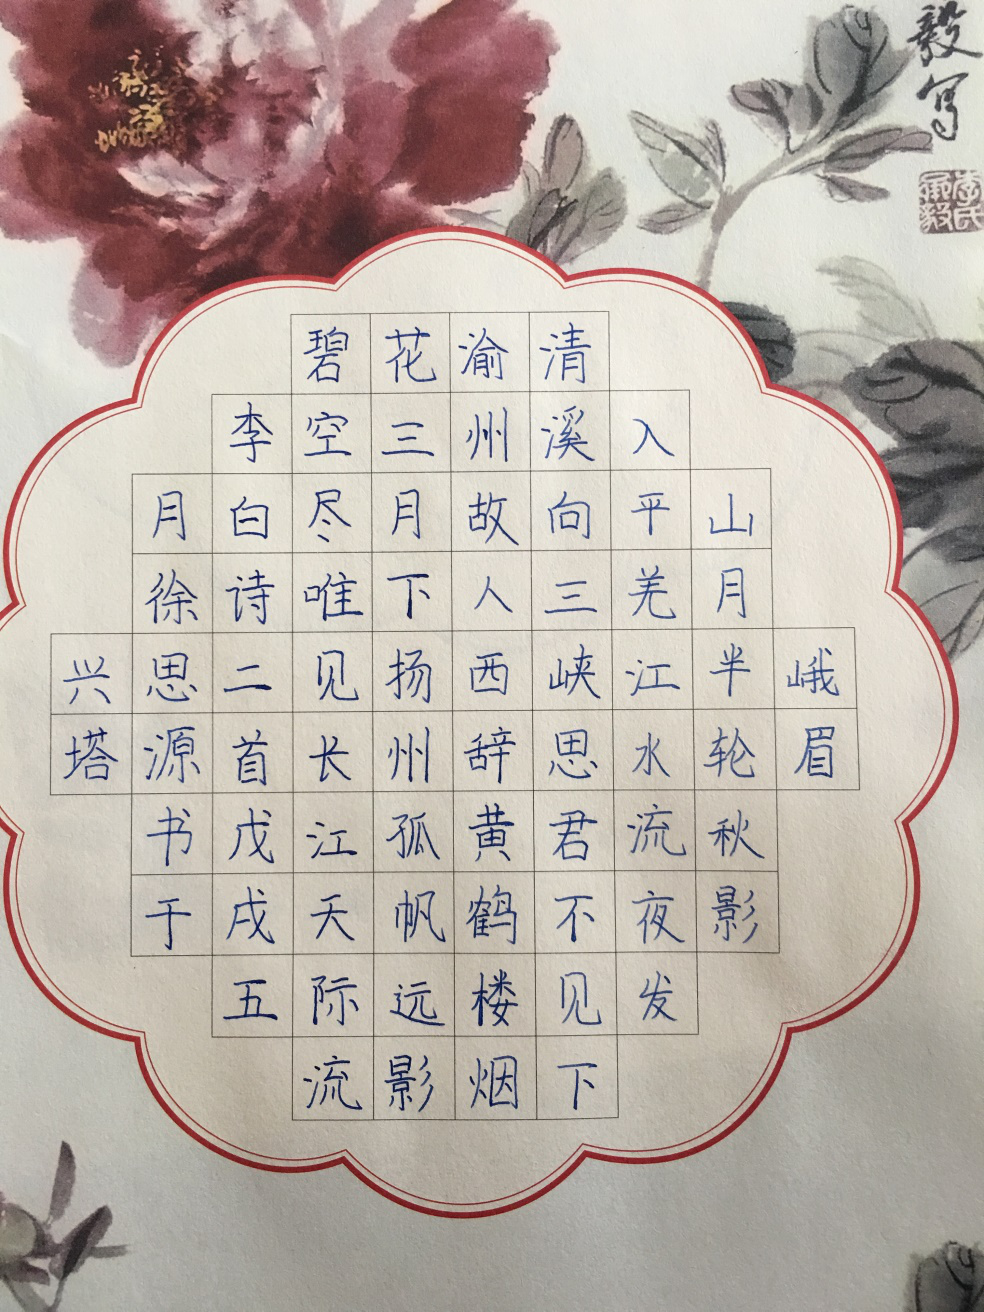 峨眉
山月半轮秋影
入平羌江水流夜发
清溪向三峡思君不见下
渝州故人西辞黄鹤楼烟
花三月下扬州孤帆远影
碧空尽唯见长江天际流
李白诗二首戊戌五
月徐思源书于
兴塔
毅写